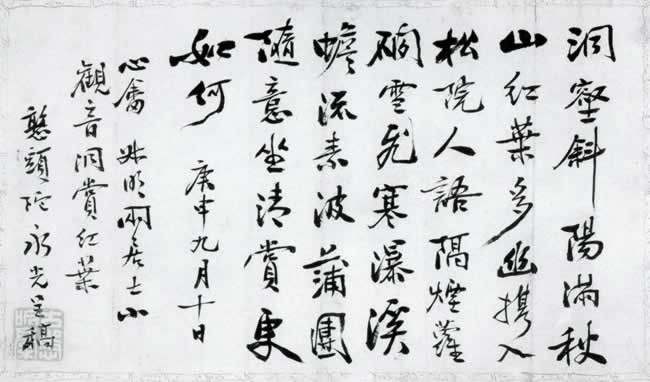 洞壑斜陽滿秋
山紅葉多幽攜入
松院人語隔煙蘿
硐雪飛寒瀑溪
蟾流素波蒲團
隨意坐清賞更
如何 庚申九月十日
心畬 叔明兩居士小
觀音洞賞紅葉
憨頭陀永光呈稿